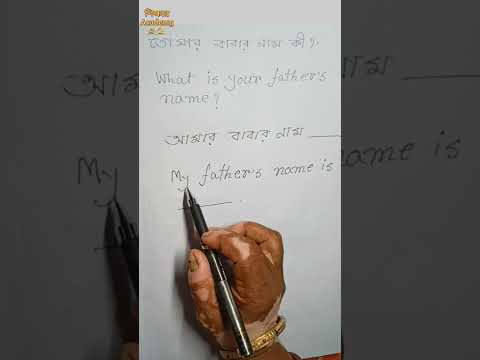 শিক্ষার
Academy
তোমার বাবার নাম কী?
What is your father's
name?
আমার বাবার নাম ____
My father's name is
____.